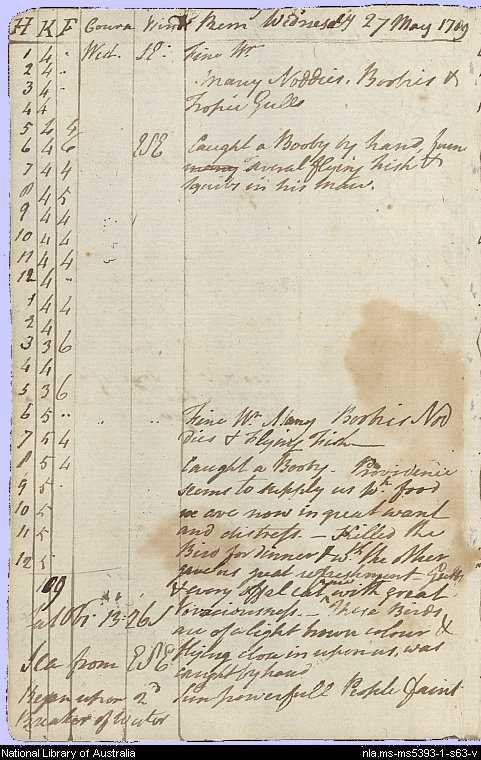 H K F Cours Winds Rem Wednesday 27 May 1789
1 4 .. West. SE: Fine Wr
2 4 ..
3 4 .. many Noddies. Boobies &
4 4 Tropic Gulls
5 4 4
6 4 6 ESE Caught a Booby by hand, foun
7 4 4 many several flying fish &
8 4 5 squids in his maw.
9 4 4
10 4 4
11 4 4
12 4 ..
1 4 4
2 4
3 3 6
4 4
5 3 6
6 5 .. .. .. Fine Wr. Many Boobies Nod
7 5 4 dies & Flying Fish
8 5 4 Caught a Booby. Providence
9 5 seems to supply us wth food
10 5 we are now in great want
11 5 and distress. — Killed the
12 5 Bird for dinner & wth the other
109 gave us great refreshment Gutts
& every offal eat with great
Lat Obs: 13:26S Voraciousness. — These Birds
are of a light brown colour &
Sea from ESE flying close in upon us, was
caught by hand
Began upon 2d Sun powerfull People faint
Breaker of Water
National Library of Australia nla.ms-ms5393-1-s63-v